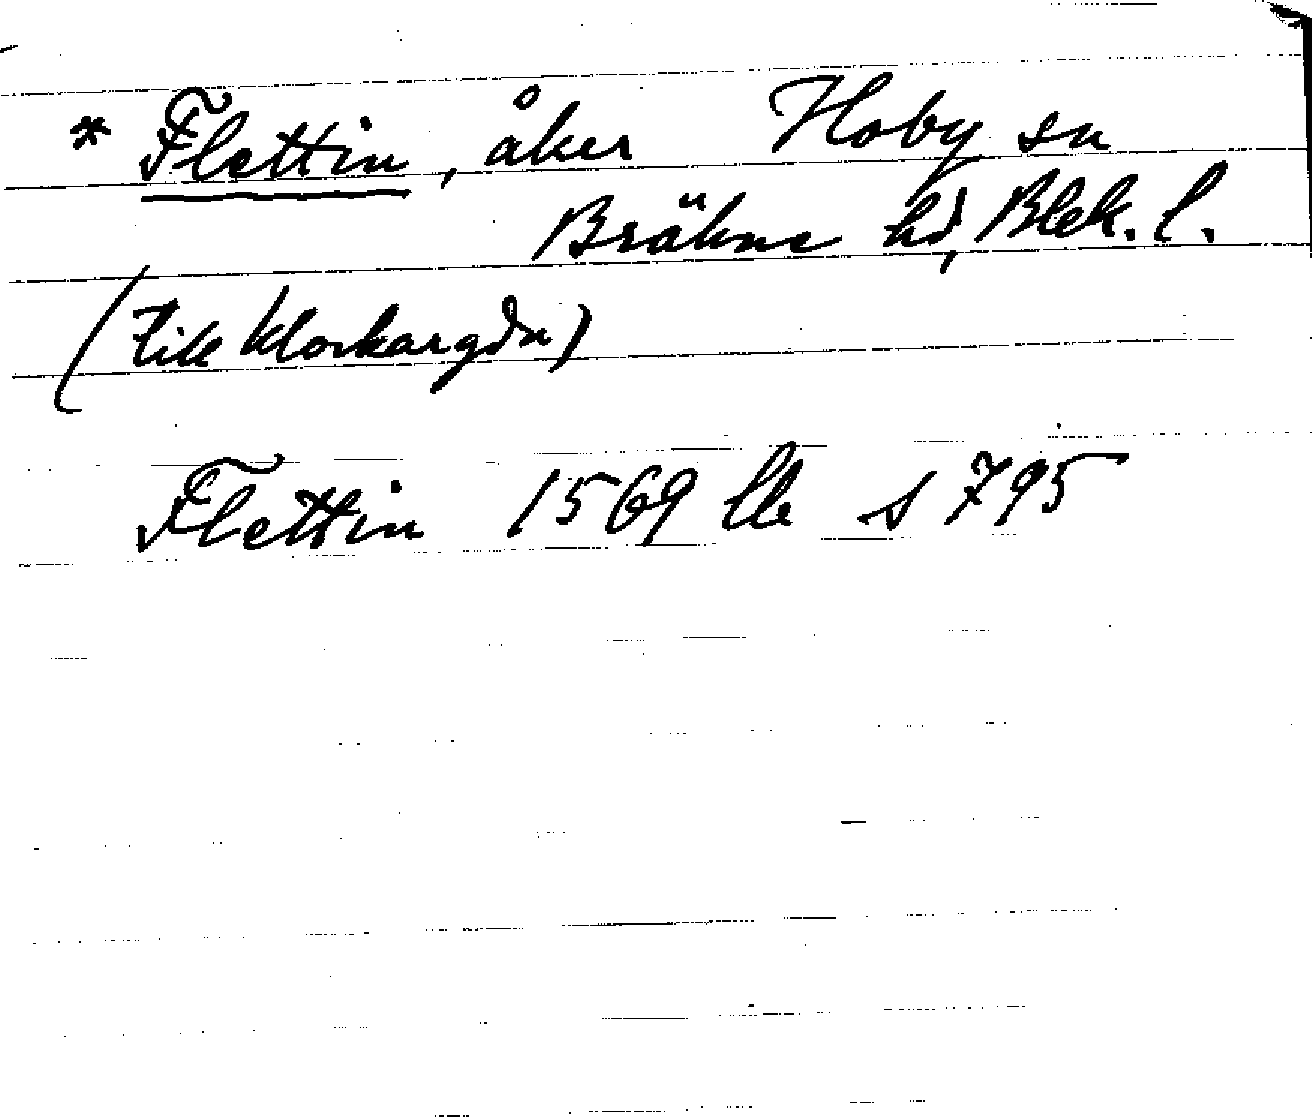 * Flettin, åker Hoby sn
Bräkne hd, Blek. l.
(till klockargdn)
Flettin 1569 lle s 795